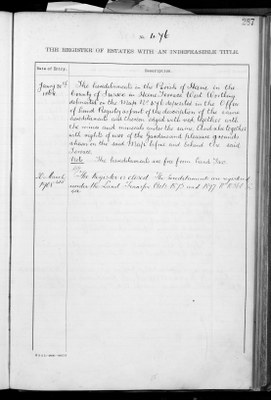 287
No 476
THE REGISTER OF ESTATES WITH AN INDEFEASIBLE TITLE.
Date of Entry.
Description.
The hereditaments in the Parish of Heene in the
1864
County of Sussex in Heene Terrace West Worthing
delineated in the Map No 476 deposited in the Office
of Land Registry as part of the description of the same
hereditaments and thereon edged with red together with
the mines and minerals under the same And also together
with rights of user of the Gardens and pleasure grounds
shewn in the said Map before and behind the said
Terrace
Note The hereditaments are free from Land Tax
March
1908
The Register is closed. The hereditaments are registered
under the Land Transfer Acts 1875 and 1897